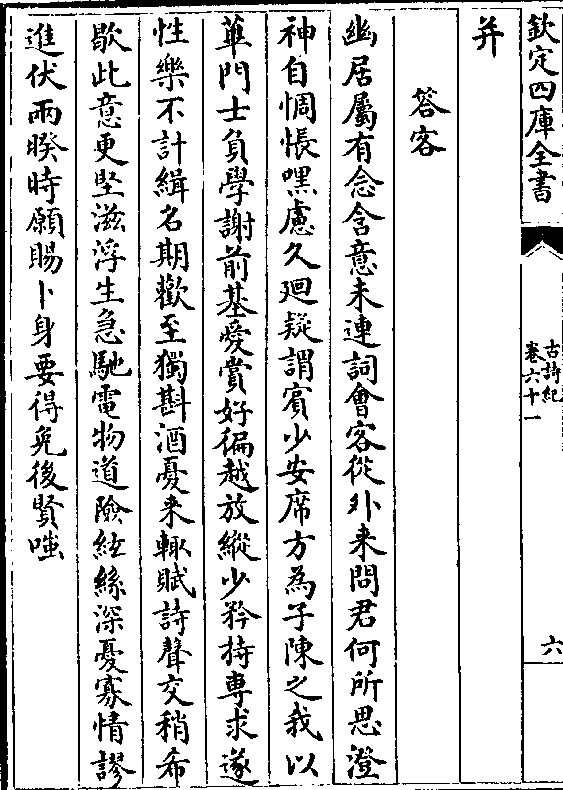 欽定四庫全書
古詩紀
卷六十一
六
并
答客
幽居屬有念含意未連詞會客從外来問君何所思澄
神自惆悵嘿慮久迴疑謂賓少安席方為子陳之我以
蓽門士負學謝前基愛賞好偏越放縱少矜持專求遂
性樂不計緝名期歡至獨斟酒憂来輙賦詩聲交稍希
歇此意更堅滋浮生急馳電物道險絃絲深憂寡情謬
進伏兩暌時願賜卜身要得免後賢嗤